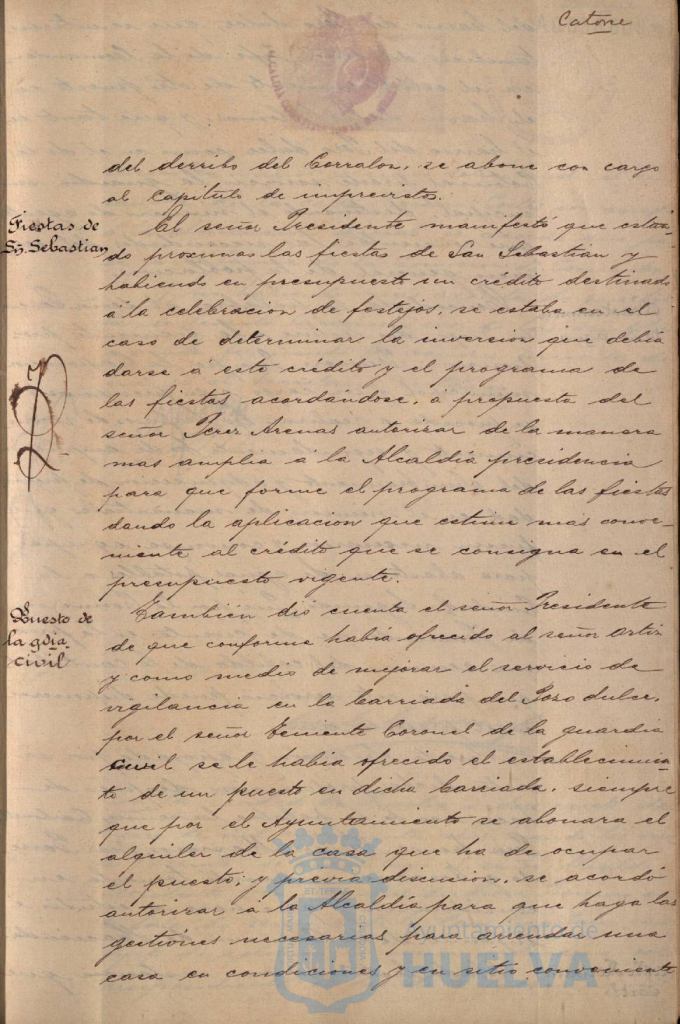 Catorce
del derribo del Corralon, se abone con cargo
al capitulo de imprevistos.
Fiestas de
Sn. Sebastian
El señor Presidente manifestó que estan-
do proximas las fiestas de San Sebastian y
habiendo en presupuesto un crédito destinado
á la celebracion de festejos, se estaba en el
caso de determinar la inversion que debia
darse á este crédito y el programa de
las fiestas acordándose, á propuesta del
señor Perez Arenas autorizar de la manera
mas amplia á la Alcaldía presidencia
para que forme el programa de las fiestas
dando la aplicacion que estime mas conve-
niente al crédito que se consigna en el
presupuesto vigente.
Puesto de
la gdia
civil
También dió cuenta el señor Presidente
de que conforme habia ofrecido al señor Ortiz
y como medio de mejorar el servicio de
vigilancia en la barriada del Pozo dulce,
por el señor Teniente Coronel de la guardia
civil se le habia ofrecido el establecimien-
to de un puesto en dicha barriada, siempre
que por el Ayuntamiento se abonara el
alquiler de la casa que ha de ocupar
el puesto; y previa discusion, se acordó
autorizar á la Alcaldía para que haga las
gestiones necesarias para arrendar una
casa en condiciones y en sitio conveniente
Ayuntamiento de
HUELVA